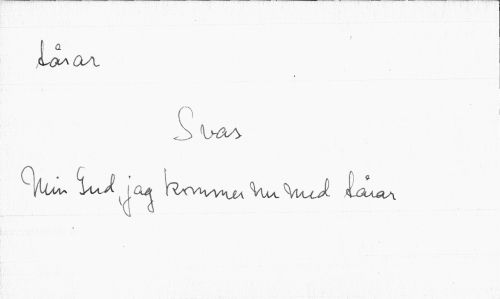 tårar
Svas
Min Gud, jag kommer nu med tårar